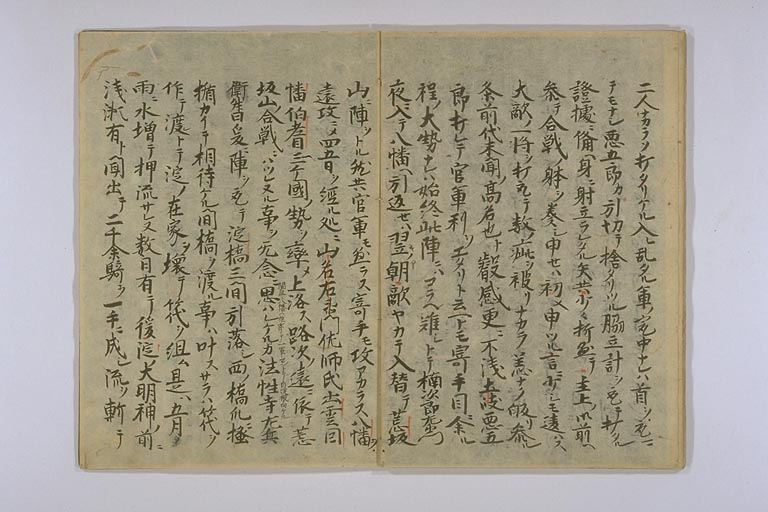 二人カラノ打タリケル入乱タル軍ノ㝡中ナレハ首ヲ取ニ
テモナシ悪五郎カ引切テ捨タリツル脇立計ヲ取テ打タル
證據ニ備ヘ身ニ射立ラレタル矢少々折懸テ主上ノ御前ヘ
参テ合戦ノ躰ヲ奏シ申セハ初メ申ツル言ニ少シモ違ハス
大敵ノ一将ヲ打取テ数ヶ所疵ヲ被リナカラ恙ナク皈リ参ル
条前代未聞高名也ト叡感更ニ不浅土岐悪五
郎打レテ官軍利ヲエタリト云トモ寄手目ニ余ル
程ノ大勢ナレハ始終此陣ニハコラヘ難シトテ楠次郎左衛門
夜ニ入テ八幡ヘ引返セハ翌朝敵ヤカテ入替テ荒坂
山ニ陣ヲトル然共官軍モ懸ラス寄手モ攻アカラス八幡ヲ
遠攻ニメ四五日ヲ経ル処ニ山名右衛門佐師氏出雲因
幡伯耆三ケ國ノ勢ヲ率メ上洛ス路次ノ遠ニ依テ荒
坂山ノ合戦ニハツレヌル事ヲ无念ニ思ハレケルカ法性寺左兵
衛督爰ニ陣ヲ取テ淀ノ橋三間引落シ西ノ橋爪ニ極
楯カイテ相待ケル間橋ヲ渡ル事ハ叶ス サラハ筏ヲ
作テ渡トテ淀ノ在家ヲ壊テ筏ヲ組ム是ハ五月ノ
雨ニ水増テ押流サレヌ数日有テ後淀ノ大明神ノ前ニ
浅瀬有ト聞出テ二千余騎ヲ一手ニ成シ流ヲ斬テ